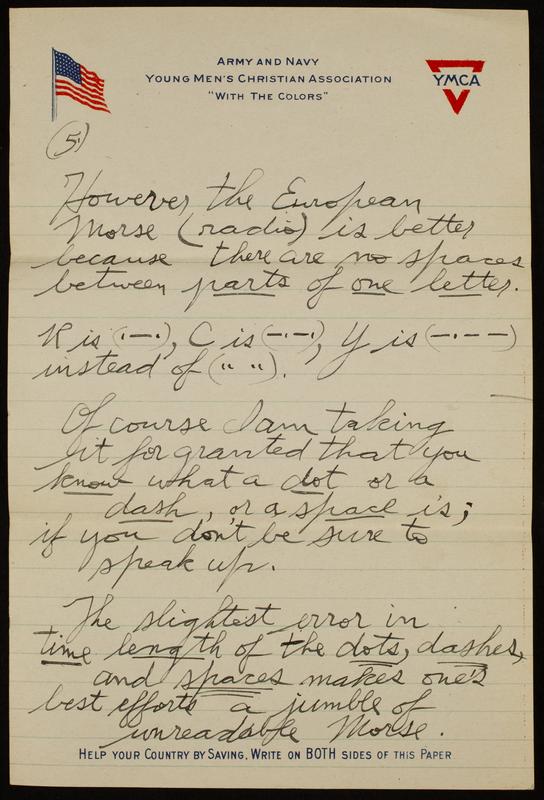 ARMY AND NAVY
YOUNG MEN'S CHRISTIAN ASSOCIATION
"WITH THE COLORS"
YMCA
(5)
However the European
Morse (radio) is better
because there are no spaces
between parts of one letter.
R is (·—·), C is (—·—·), Y is (—·— —)
instead of (·· ··).
Of course I am taking
it for granted that you
know what a dot or a
dash, or a space is;
if you don't be sure to
speak up.
The slightest error in
time length of the dots, dashes,
and spaces makes one's
best efforts a jumble of
unreadable Morse.
HELP YOUR COUNTRY BY SAVING. WRITE ON BOTH SIDES OF THIS PAPER